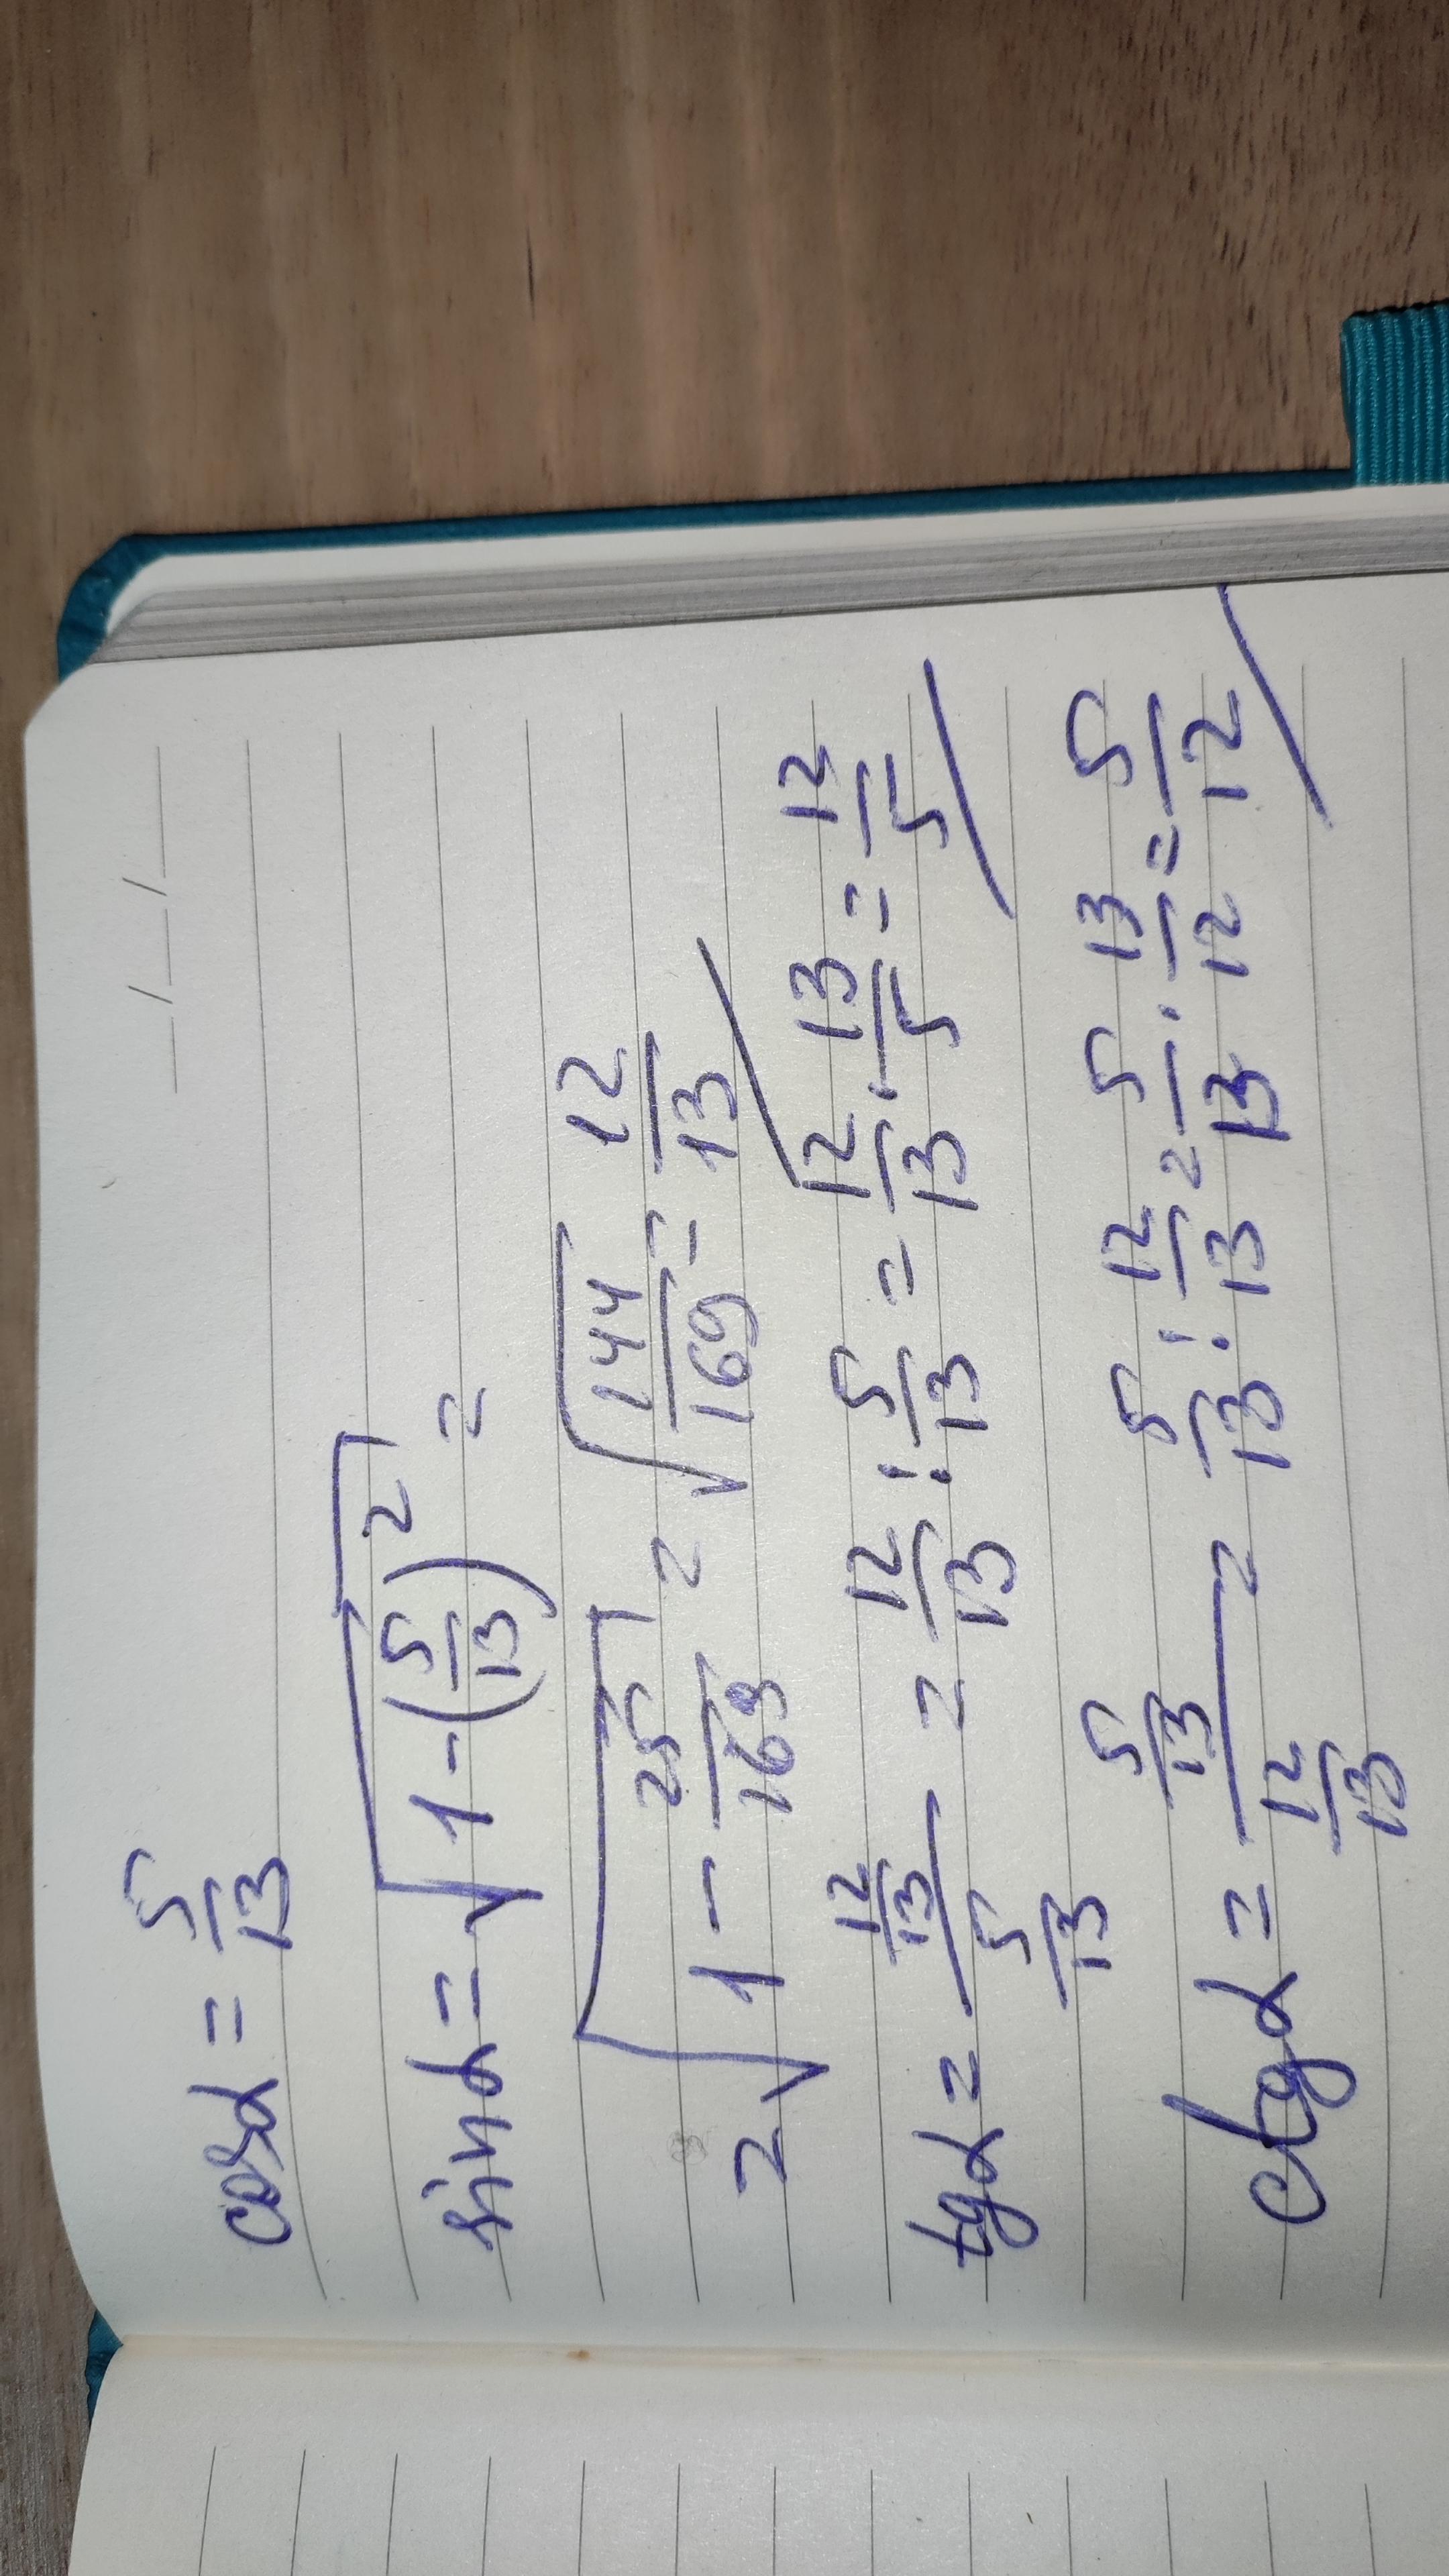 cosα = 5/13
sinα = √(1-(5/13)²) =
= √(1 - 25/169) = √(144/169) = 12/13
tgα = (12/13)/(5/13) = 12/13 : 5/13 = 12/13 · 13/5 = 12/5
ctgα = (5/13)/(12/13) = 5/13 : 12/13 = 5/13 · 13/12 = 5/12